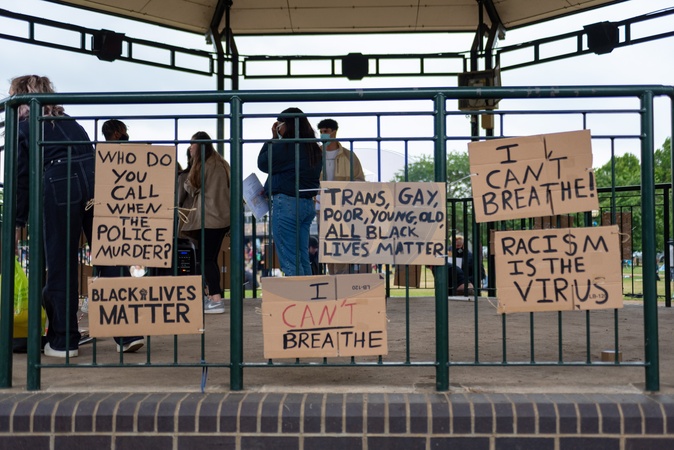 WHO DO
YOU
CALL
WHEN
THE
POLICE
MURDER?
BLACK LIVES
MATTER
I
CAN'T
BREATHE
TRANS, GAY,
POOR, YOUNG, OLD,
ALL BLACK
LIVES MATTER
I
CAN'T
BREATHE!
RACI$M
IS THE
VIRUS